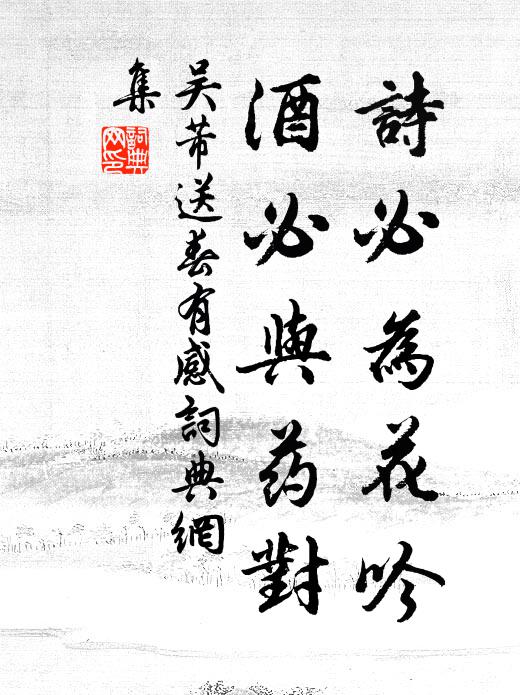 詩必為花吟
酒必與药對
吴芾送春有感詞典網
集
詞典
网印